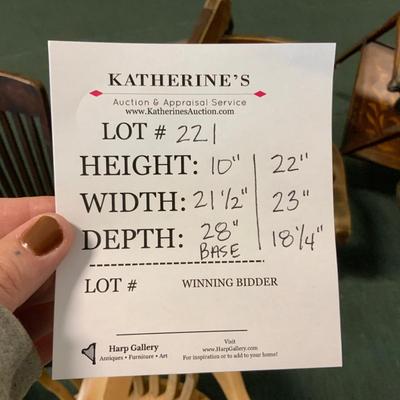 KATHERINE'S
Auction & Appraisal Service
www.KatherinesAuction.com
LOT # 221
HEIGHT: 10" | 22"
WIDTH: 21 1/2" | 23"
DEPTH: 28" BASE | 18 1/4"
LOT # WINNING BIDDER
Harp Gallery
Antiques • Furniture • Art
Visit
www.HarpGallery.com
For inspiration or to add to your home!